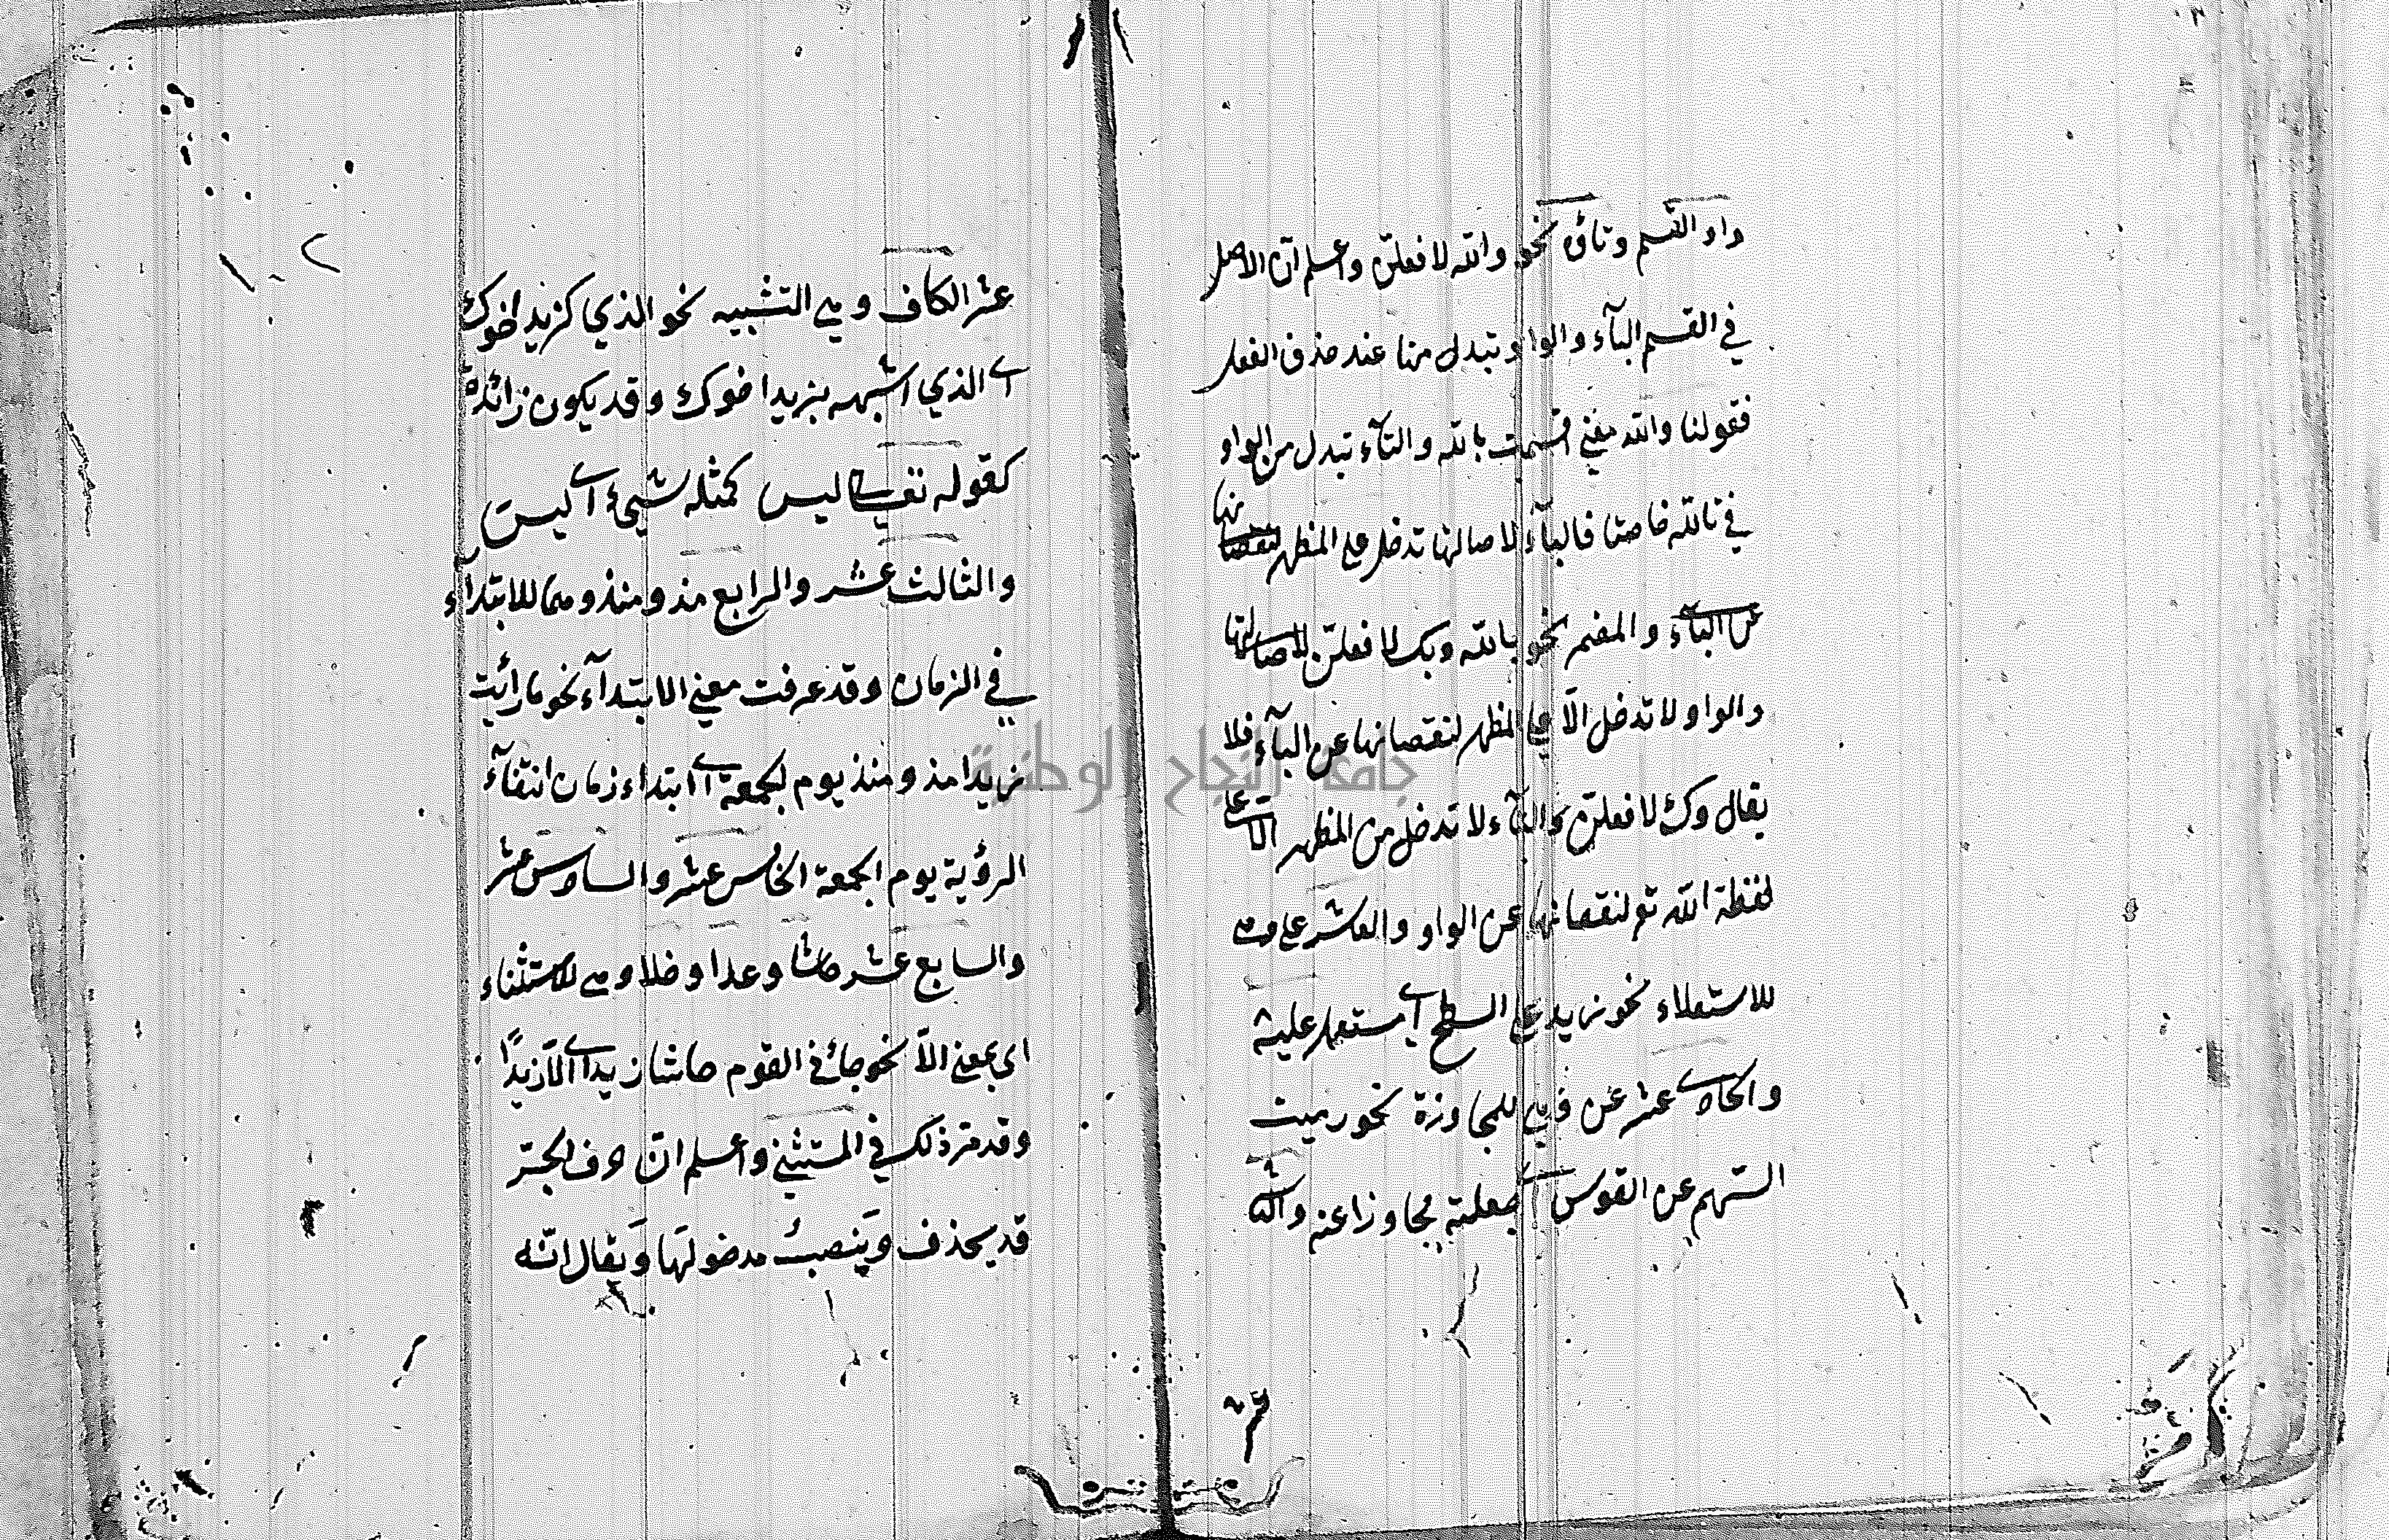 واو القسم وتاؤه نحو والله لافعلن واعلم ان الاصل
في القسم البآء والواو تبدل منها عند حذف الفعل
فقولنا والله معنى اقسمت بالله والتآء تبدل من الواو
في تالله خاصتا فالبآء لاصالتها تدخل على المظهر لنقصانها
عن البآء والمضمر نحو بالله وبك لافعلن لاصالتها
والواو لا تدخل الا على المظهر لنقصانها عن البآء فلا
يقال وك لافعلن والتآء لا تدخل من المظهر الا على
لفظة الله تع لنقصانها عن الواو والعاشر على وهي
للاستعلاء نحو زيد على السطح اي مستعل عليه
والحادي عشر عن فهي للمجاوزة نحو رميت
السهم عن القوس اي جعلته مجاوزا عنه والثا
ني
عشر الكاف وهي التشبيه نحو الذي كزيد اخوك
اي الذي اشبهه بزيد اخوك وقد يكون زائدة
كقوله تعالى ليس كمثله شيئ اي ليس
والثالث عشر والرابع مذ ومنذ وهما للابتدآء
في الزمان وقد عرفت معنى الابتدآء نحو ما رأيت
زيدا مذ ومنذ يوم الجمعة اي ابتداء زمان انتفآء
الرؤية يوم الجمعة الخامس عشر والسادس عشر
والسابع عشر حاشا وعدا وخلا وهي للاستثناء
اي بمعنى الاّ نحو جائني القوم حاشا زيدا اي الاّ زيدًا
وقد مرّ ذلك في المستثنى واعلم انّ حرف الجرّ
قد يحذف وَينصب مدخولها وَيقال انّه
جامعة النجاح الوطنية